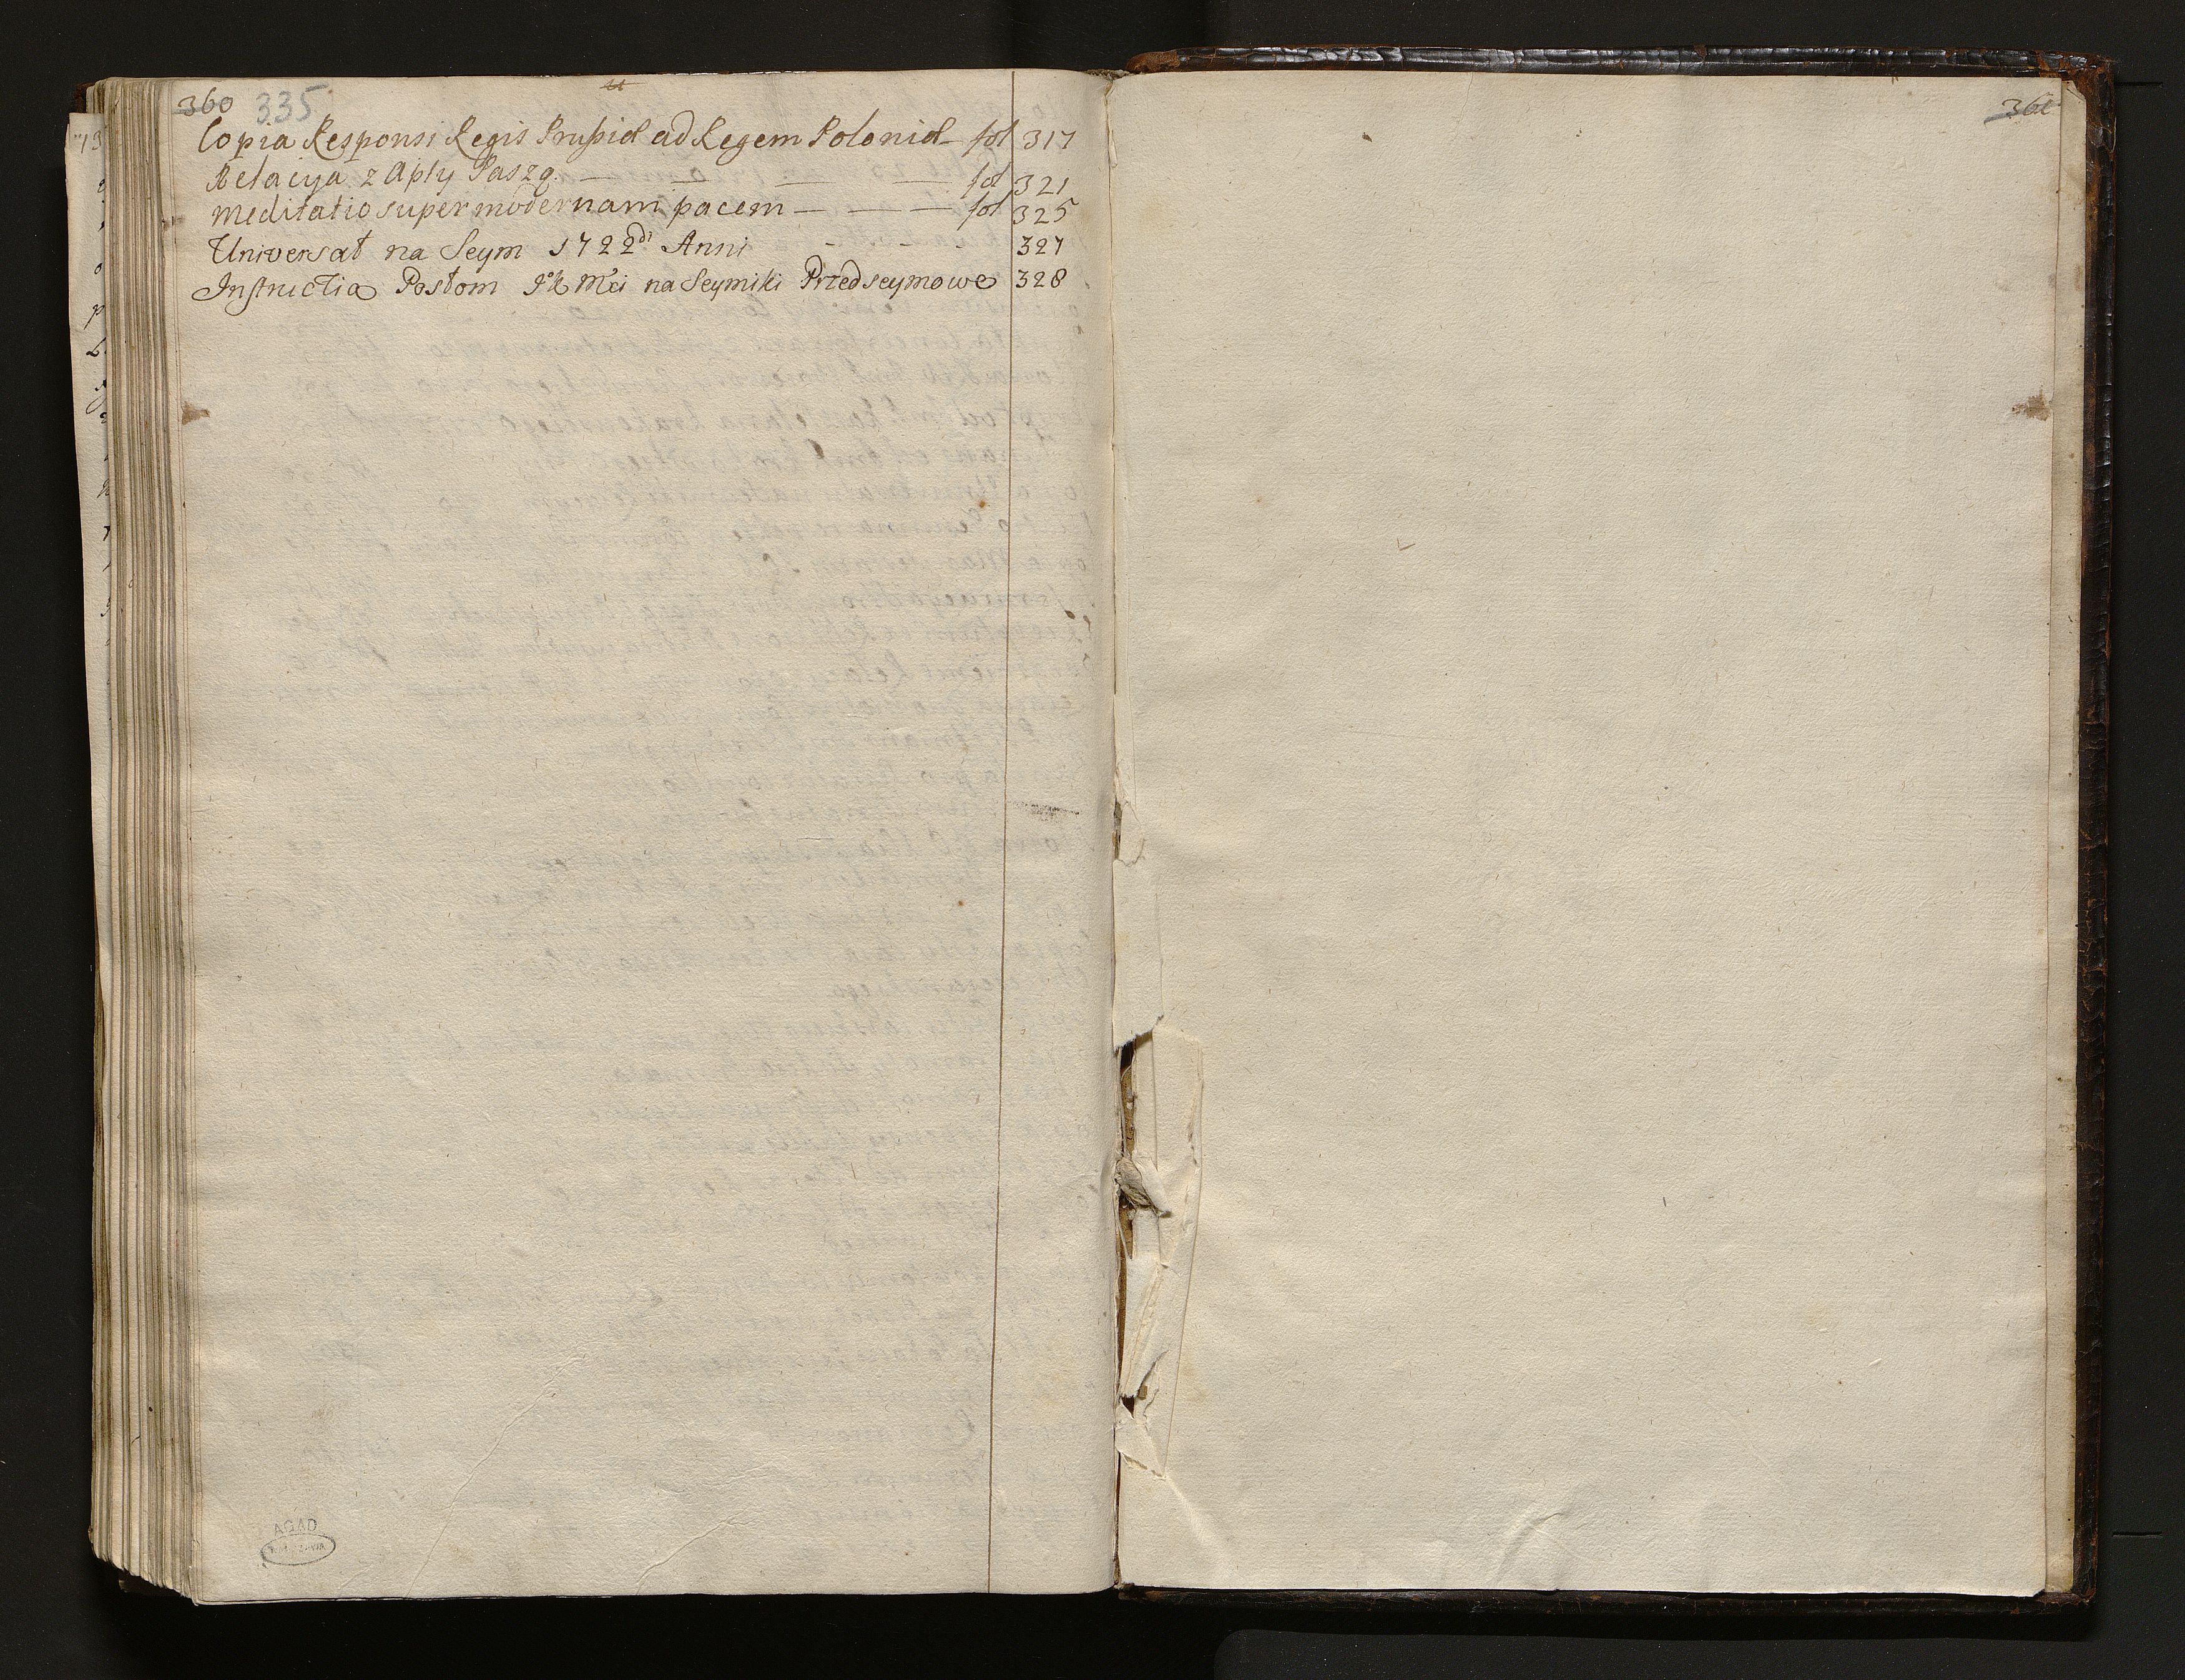 360 335
Copia Responsi Regis Prußiæ ad Regem Poloniæ fol 317
Relacya z Apty Paszą fol 321
Meditatio super modernam pacem fol 325
Universał na Seym 1722di Anni 327
Instructia Posłom JK Mći na Seymiki Przedseymowe 328
AGAD
361